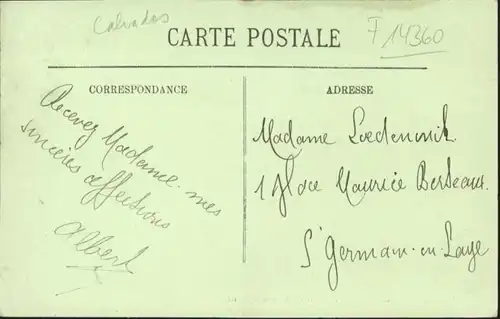 Calvados
F 14360
CARTE POSTALE
CORRESPONDANCE
Recevez Madame mes
sincères affections
Albert
ADRESSE
Madame
1 Place Maurice Berteaux
St Germain-en-Laye